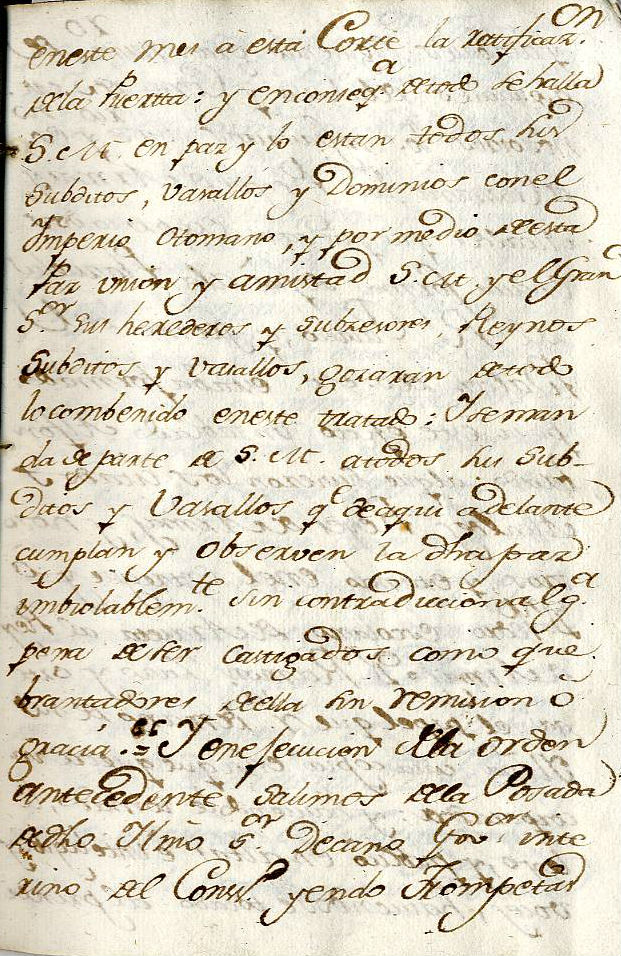 en este mes à està Corte la ratificaz.on
dela Puertta: y enconseq.a detodo se halla
S. M. en paz y lo estan todos sus
Subditos, Vasallos y Dominios conel
Imperio Otomano, y por medio deesta
Paz union y amistad S. M. y el Gran
S.or sus herederos y subcesores, Reynos
Subditos y vasallos, gozaran detodo
lo combenido eneste tratado: Y seman
da de parte de S. M. atodos sus Sub-
ditos y Vasallos q.e deaqui adelante
cumplan y observen la dha paz
imbiolablem.te sin contradiccion alg.a
pena de ser castigados como que
brantadores deella sin remision ò
gracia. = Y enejecucion dela orden
antecedente salimos dela Posada
de dho Illmo S.or Decano Gov.or inte
rino del Cons.o yendo Trompetas